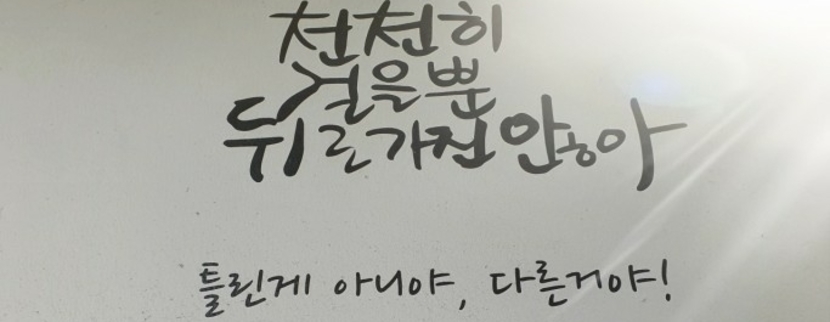 천천히
걸을 뿐
뒤로 가진 않아
틀린게 아니야, 다른거야!